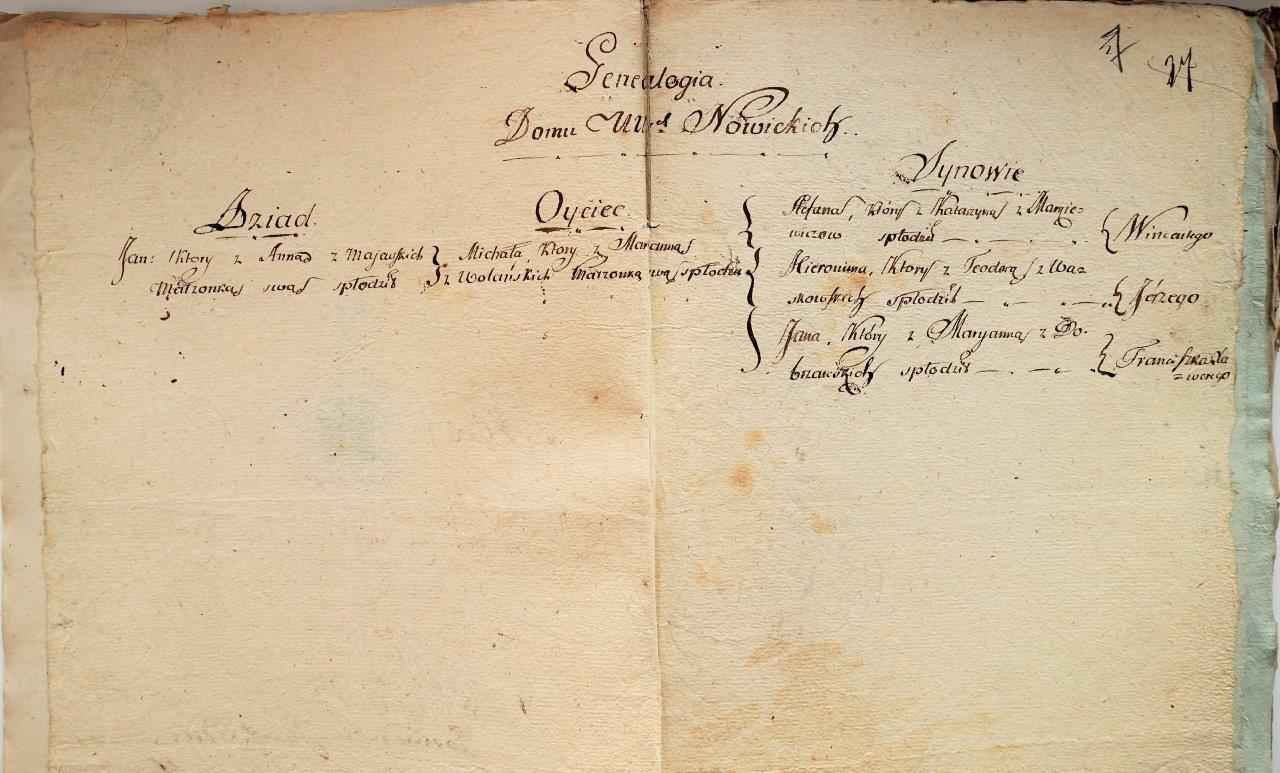 27
Genealogia
Domu Nowickich.
Dziad.
Jan: Który z Anną z Majewskich
Małżonką swą spłodził
Oyciec
Michała, który z Maryanną
z Wolańskich Małżonką swą spłodził
Synowie
Stefana, który z Katarzyną z Marcie-
wiczow spłodził
Wincentego
Hieronima, Który z Teodorą z Wa=
skowskich spłodził
Józego
Jana, Który z Maryanną z Do-
brzewskich spłodził
Franciszka Xa
=werego